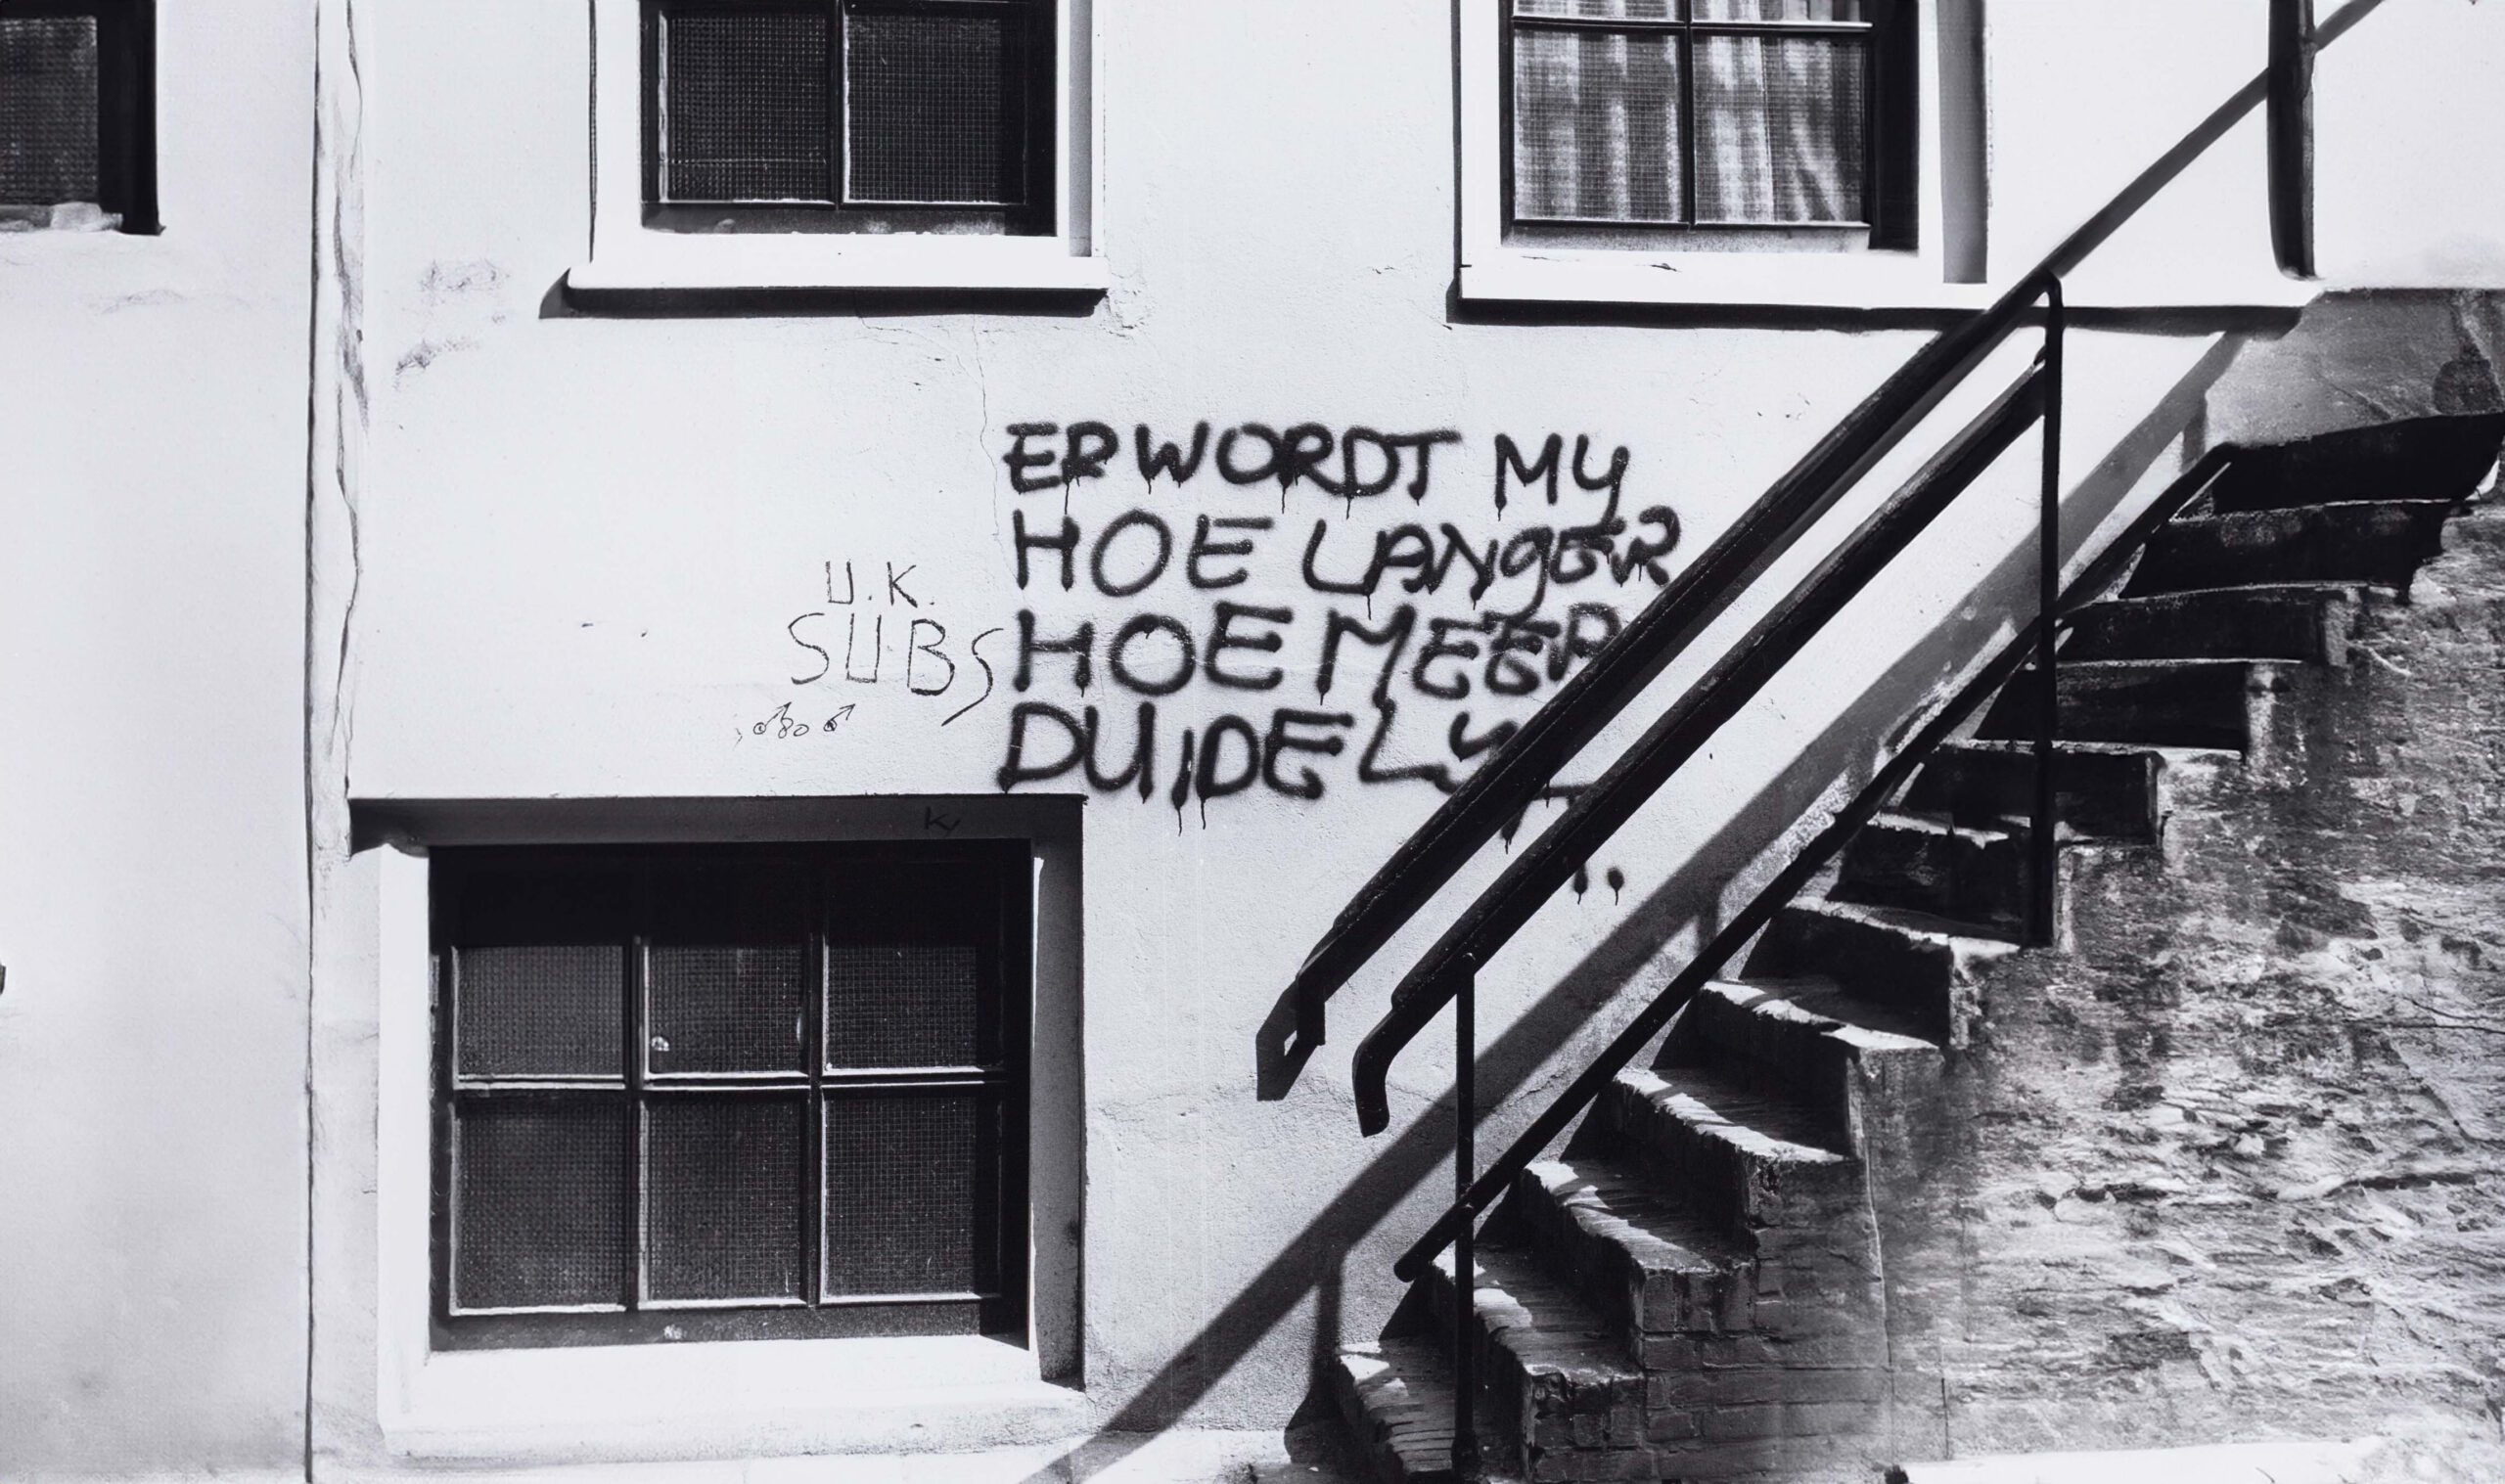 U.K.
SUBS
ER WORDT MY
HOE LANGER
HOE MEER
DUIDELY